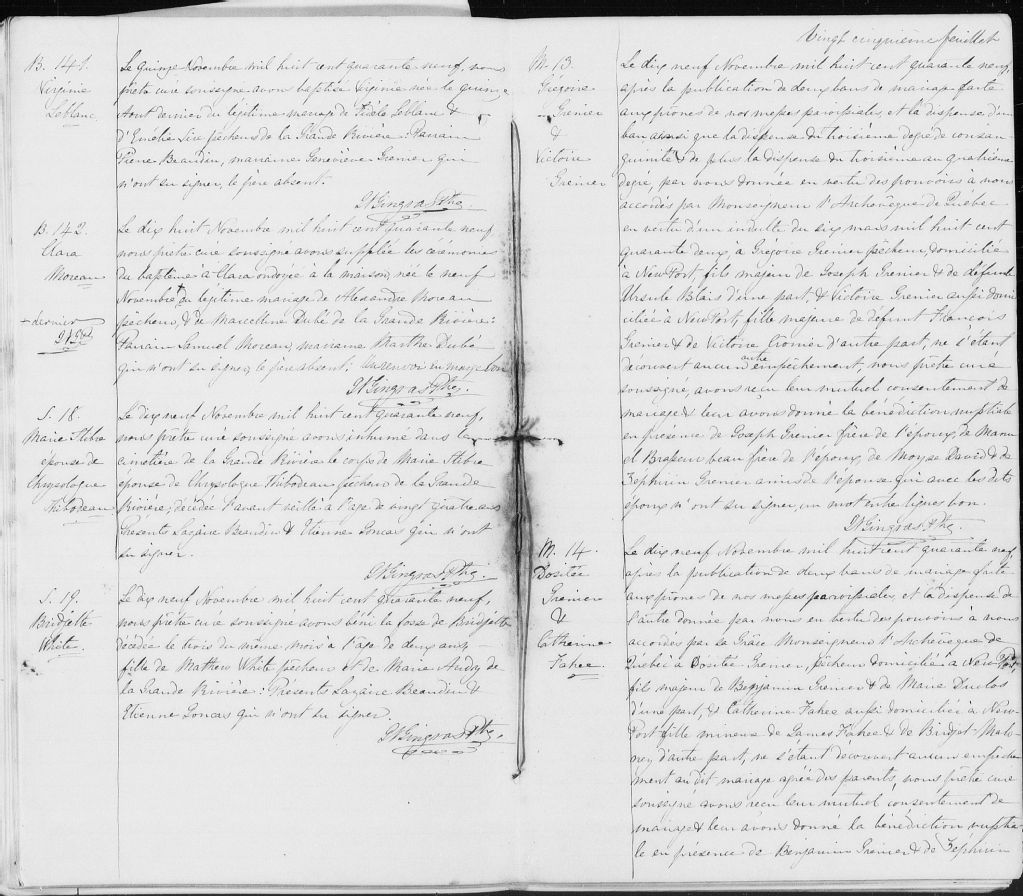 B. 141.
Virginie
Leblanc
Le quinze Novembre mil huit cent quarante neuf, nous
prêtre curé soussigné avons baptisé Virginie née le quinze
Aout dernier du légitime mariage de Fidèle Leblanc &
d'Emélie pêcheur de la Grande Rivière: Parrain
Pierre Beaudin, marraine Geneviève Grenier qui
n'ont su signer, le père absent.
N Gingras Ptre.
B. 142.
Clara
Moreau
+ dernier
Le dix huit Novembre mil huit cent quarante neuf
nous prêtre curé soussigné avons suppléé les cérémonies
du baptême à Clara ondoyée à la maison, née le neuf
Novembre + du légitime mariage de Alexandre Moreau
pêcheur, & de Marcelline Dubé de la Grande Rivière:
Parrain Samuel Moreau, marraine Marthe Dubé
qui n'ont su signer, le père absent; Un renvoi en marge bon
N Gingras Ptre.
S. 18.
Marie
épouse de
Chrysologue
Thibodeau
Le dix neuf Novembre mil huit cent quarante neuf,
nous prêtre curé soussigné avons inhumé dans le
cimetière de la Grande Rivière le corps de Marie
épouse de Chrysologue Thibodeau pêcheur de la Grande
Rivière; décédée l'avant veille à l'age de vingt quatre ans
Présents Lazaire Beaudin & Etienne Loncas qui n'ont
su signer.
N Gingras Ptre.
S. 19.
Bridgette
White.
Le dix neuf Novembre mil huit cent quarante neuf,
nous prêtre curé soussigné avons béni la fosse de Bridgette
décédée le trois du même mois à l'age de deux ans,
fille de Mathew White pêcheur et de Marie Audy de
la Grande Rivière: Présents Lazaire Beaudin &
Etienne Loncas qui n'ont su signer.
N Gingras Ptre.
Vingt cinquième feuillet
M. 13.
Grégoire
Grenier
&
Victoire
Grenier
Le dix neuf Novembre mil huit cent quarante neuf,
après la publication de deux bans de mariage faite
aux prônes de nos messes paroissiales, et la dispense d'un
ban ainsi que la dispense du troisième degré de consan-
guinité & de plus la dispense du troisième au quatrième
degré, par nous donnée en vertu des pouvoirs à nous
accordés par Monseigneur l'Archevêque de Québec
en vertu d'un indulte du six mars mil huit cent
quarante deux, à Grégoire Grenier pêcheur, domicilié
à New Port, fils majeur de Joseph Grenier & de défunte
Ursule Blais d'une part, & Victoire Grenier aussi domi
ciliée à New Port, fille majeure de défunt François
Grenier & de Victoire d'autre part, ne s'étant
découvert aucun autre empêchement, nous prêtre curé
soussigné, avons reçu leur mutuel consentement de
mariage & leur avons donné la bénédiction nuptiale
en présence de Joseph Grenier frère de l'époux, de Manu
el Brasseur beau frère de l'époux, de Moyse David & de
Zéphirin Grenier amis de l'épouse qui avec les dits
époux n'ont su signer, un mot entre lignes bon.
N Gingras Ptre.
M. 14.
Dosité
Grenier
&
Catherine
Fahee.
Le dix neuf Novembre mil huit cent quarante neuf,
après la publication de deux bans de mariage faite
aux prônes de nos messes paroissiales, et la dispense de
l'autre donnée par nous en vertu des pouvoirs à nous
accordés par Sa Grâce Monseigneur l'Archevêque de
Québec à Dosité Grenier, pêcheur domicilié à New Port,
fils majeur de Benjamin Grenier & de Marie Duclos
d'une part, & Catherine Fahee aussi domiciliée à New-
Port fille mineure de James Fahee & de Bridget Malo-
ney, d'autre part, ne s'étant découvert aucun empêche
ment au dit mariage agréé des parents, nous prêtre curé
soussigné avons reçu leur mutuel consentement de
mariage & leur avons donné la bénédiction nuptia-
le en présence de Benjamin Grenier & de Zéphirin